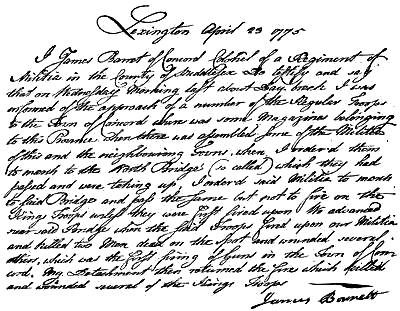 Lexington April 23 1775
I James Barret of Concord Colonel of a Regiment of
Militia in the County of Middlesex Do testify and say
that on Wednesday Morning last about Day break I was
informed of the approach of a number of the Regular Troops
to the Town of Concord where was some Magazines belonging
to this Province when there was assembled some of the Militia
of this and the neighbouring Towns, when I orderd them
to march to the North Bridge (so called) which they had
passed and were taking up, I orderd said Militia to march
to said Bridge and pass the same but not to fire on the
Kings Troops unless they were first fired upon We advanced
near said Bridge when the said Troops fired upon our Militia
and killed two Men dead on the spot and wounded several
others, which was the first firing of Guns in the Town of Con-
cord. My Detachment then returned the fire which killed
and wounded several of the Kings Troops
James Barrett